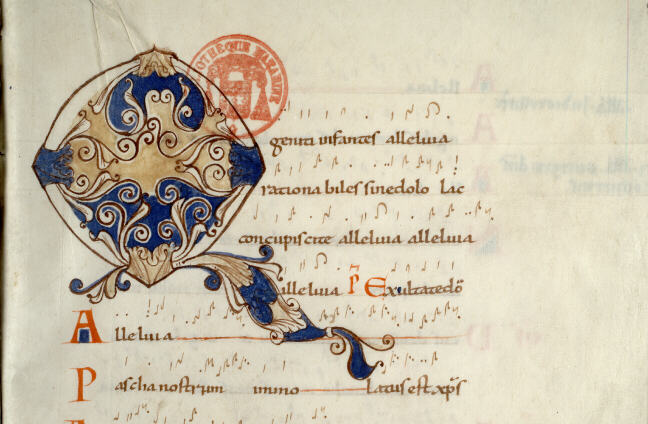 BIBLIOTHEQUE MAZARINE
Q
geniti infantes alleluia
rationabiles sine dolo lac
concupiscite alleluia alleluia
alleluia P Exultate dō
Alleluia
Pascha nostrum immo latus est xp̄s